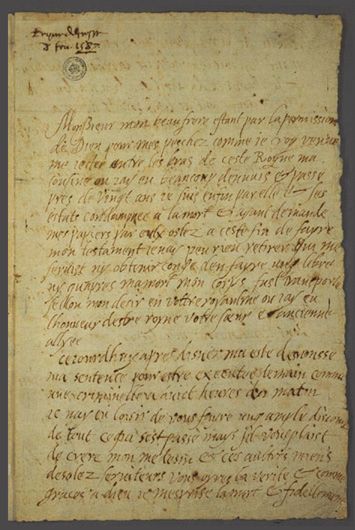 Monssieur mon beau frere estant par la permission
de Dieu pour mes peschez comme ie croy venue
me iecter entre les bras de ceste Royne ma
cousine ou iay eu beaucoup dennuis & passe
pres de vingt ans ie suis enfin par elle & ses
estats condampnee a la mort & ayant demande
mes papiers par eulx ostez a ceste fin de fayre
mon testament ie nay peu rien retirer qui me
seruist ny obtenir conge den fayre ung libre
ny quapres ma mort mon corps fust transporte
sellon mon desir en votre royaulme ou iay eu
lhonneur destre royne votre sœur & ancienne
allyee
Ceiourdhuy apres disner ma este desnonsse
ma sentence pour estre executee demain comme
une criminelle a huict heures du matin
ie nay eu loisir de vous fayre ung ample discours
de tout ce qui sest passe mays sil vous plaist
de crere mon medessin & ces aultres miens
desolez seruiteurs vous oyres la verite & comme
graces a dieu ie mesprise la mort & fidellement